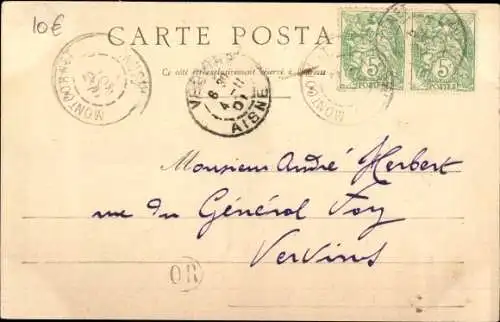 10€
CARTE POSTA
Ce côté est exclusivement réservé à
5 5
POSTES POSTES
MONTCORNET
AISNE
Monsieur André Herbert
rue du Général Foy
Vervins
OR